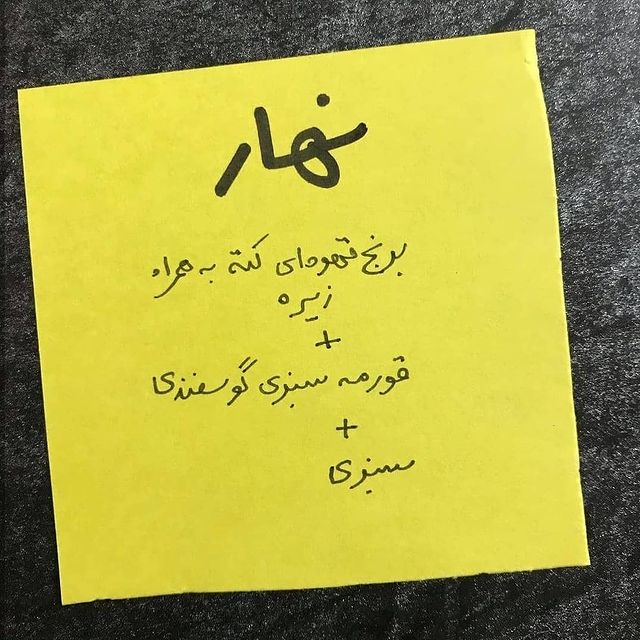 نهار
برنج قهوه‌ای کته به همراه
زیره
+
قورمه سبزی گوسفندی
+
سبزی